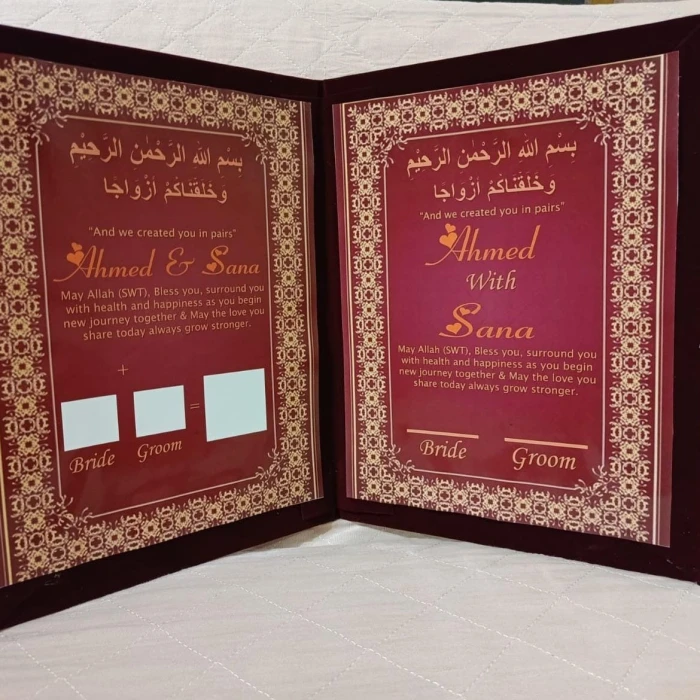 بِسْمِ اللهِ الرَّحْمٰنِ الرَّحِيْمِ
وَخَلَقْنَاكُمْ أَزْوَاجًا
"And we created you in pairs"
Ahmed & Sana
May Allah (SWT), Bless you, surround you
with health and happiness as you begin
new journey together & May the love you
share today always grow stronger.
+
=
Bride Groom
بِسْمِ اللهِ الرَّحْمٰنِ الرَّحِيْمِ
وَخَلَقْنَاكُمْ أَزْوَاجًا
"And we created you in pairs"
Ahmed
With
Sana
May Allah (SWT), Bless you, surround you
with health and happiness as you begin
new journey together & May the love you
share today always grow stronger.
Bride Groom